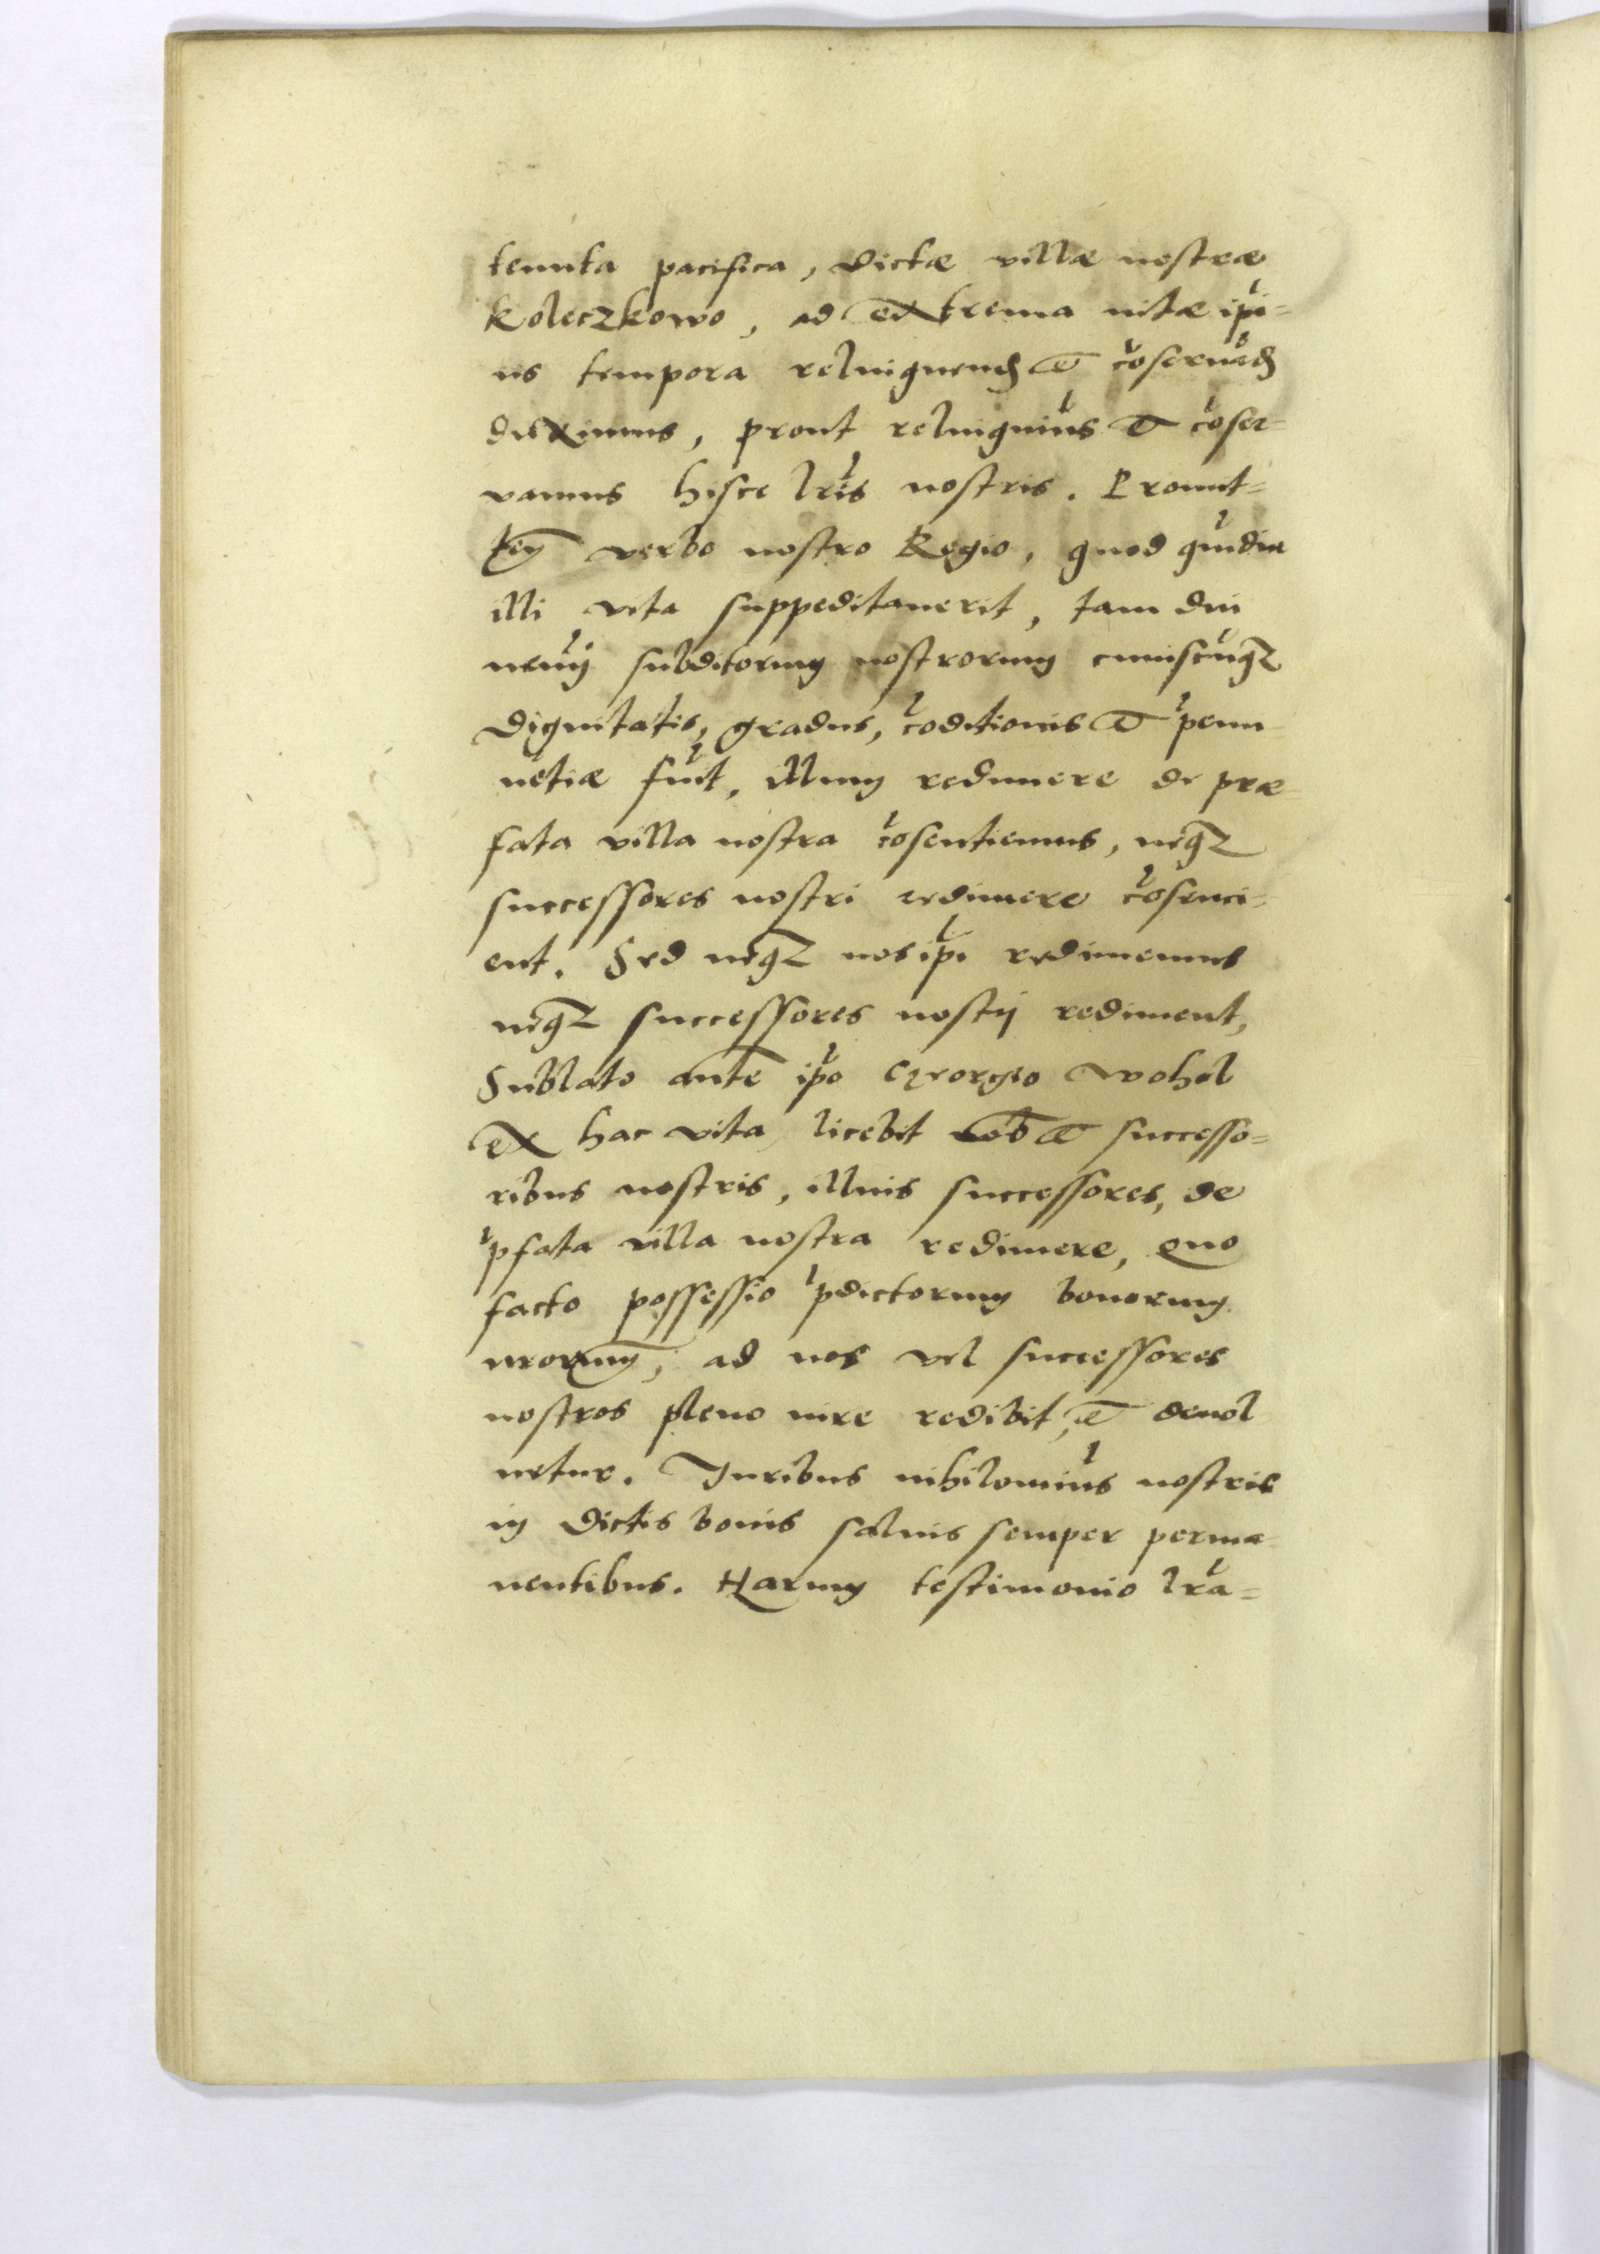 tenuta pacifica, dictæ villæ nostræ
Koleczkowo, ad extrema uitæ ip̃i-
us tempora relinquend̃ et cõseruãd̃
duximus, prout relinquim̃us et cõser-
vamus hisce lr̃is nostris. Promit-
teñ verbo nostro Regio, quod qũdiu
illi vita suppeditauerit, tam diu
nem̃ij subditorum nostrorum cuiuscũq3
dignitatis, gradus, cõditionis et p̃emi-
nẽtiæ fũit, illum redimere de præ-
fata villa nostra cõsentiemus, neq3
successores nostri redimere cõsenci-
ent. Sed neq3 nos ip̃i redimemus
neq3 successores nostrj rediment,
Sublato autẽ ip̃o Georgio Wohol
ex hac vita, licebit nob̃ et successo-
ribus nostris, illius successores, de
p̃fata villa nostra redimere, quo
facto possessio p̃dictorum bonorum
nr̃orum, ad nos vel successores
nostros pleno iure redibit, et deuol
uetur. Juribus nihilomin̂us nostris
in dictis bonis saluis semper perma-
nentibus. Harum testimonio lr̃a-